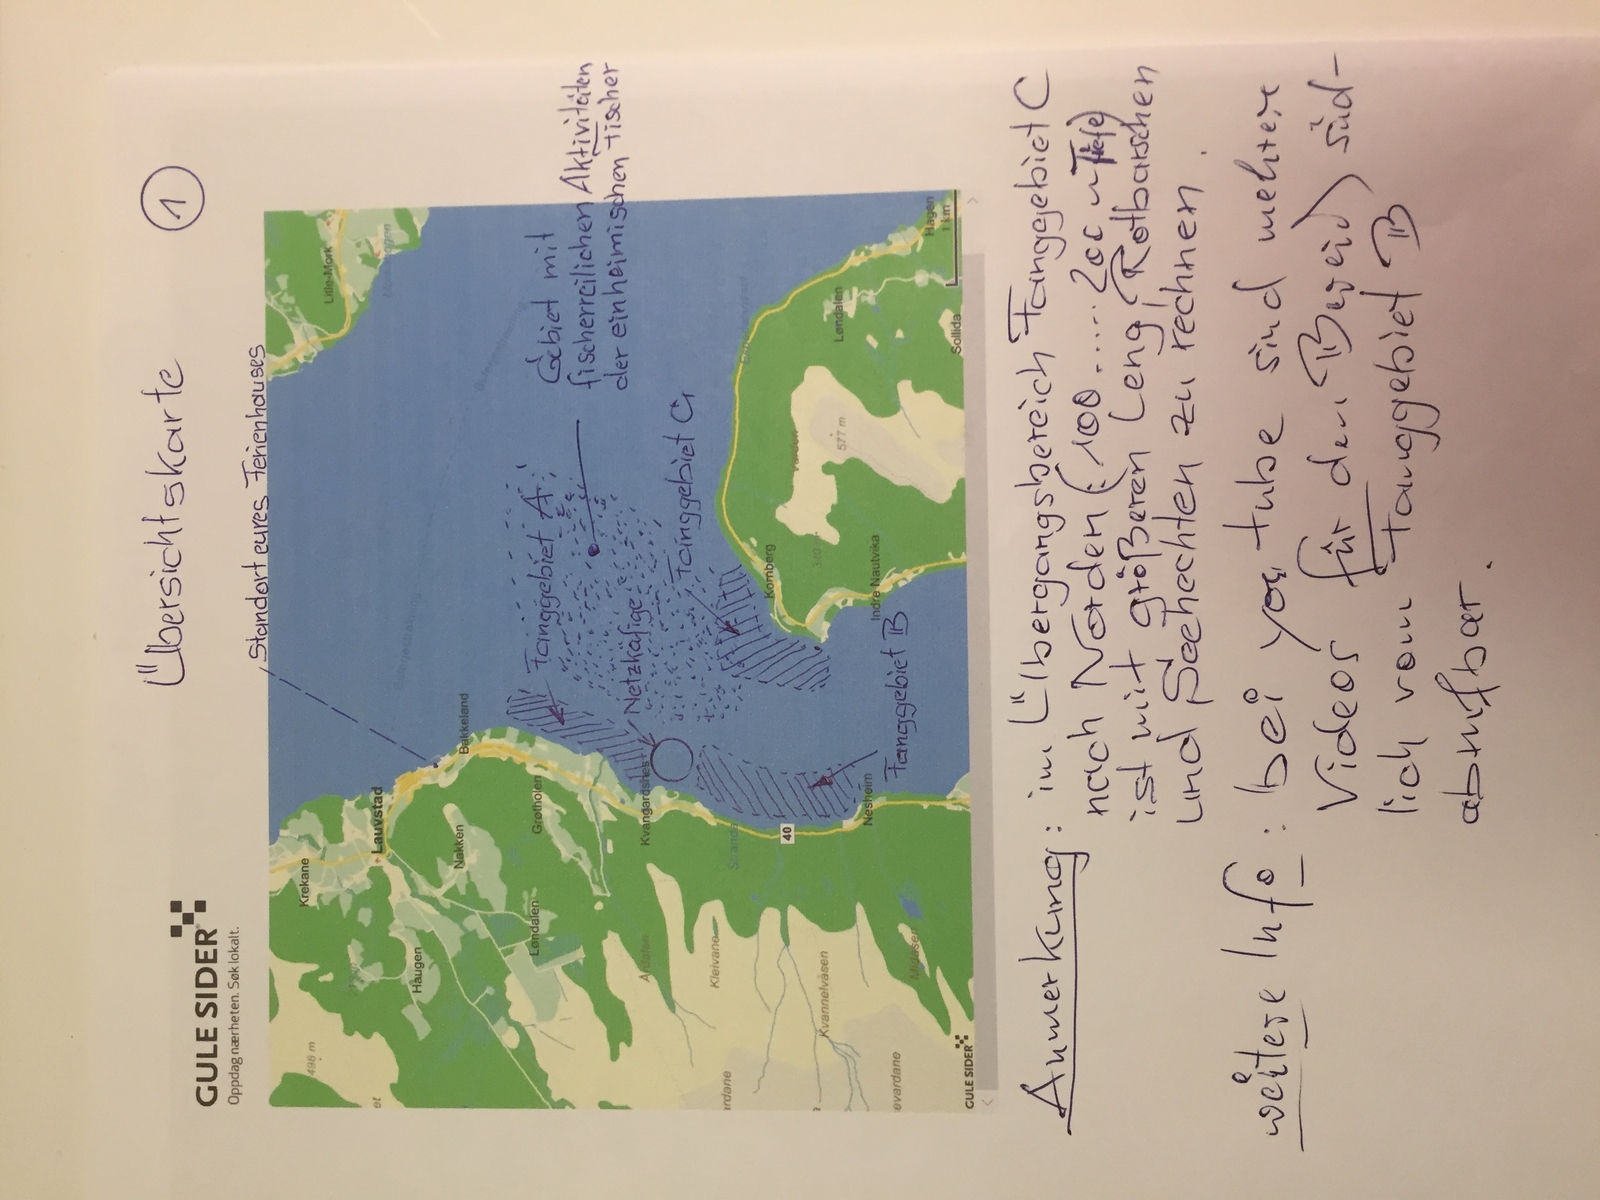 Übersichtskarte
1
GULE SIDER
Oppdag nærheten. Søk lokalt.
Standort eures Ferienhauses
Lille-Mork
Krekane
Lauvstad
498 m
Haugen
Nakken
Bakkeland
Grøtholen
Løndalen
Fanggebiet A
Gebiet mit
fischerreilichen Aktivitäten
der einheimischen Fischer
Netzkäfige
Fanggebiet C
Kvangardsnes
Kleivane
40
Komberg
577 m
Løndalen
Kvannelvåsen
Nesheim
Indre Nautvika
Fanggebiet B
Hagen
1 km
Sollida
GULE SIDER
Anmerkung: im Übergangsbereich Fanggebiet C
nach Norden (100.....200 m Tiefe)
ist mit größeren Leng, Rotbarschen
und Seehechten zu rechnen.
weitere Info: bei you tube sind mehrere
Videos für den Bereich süd-
lich vom Fanggebiet B
abrufbar.